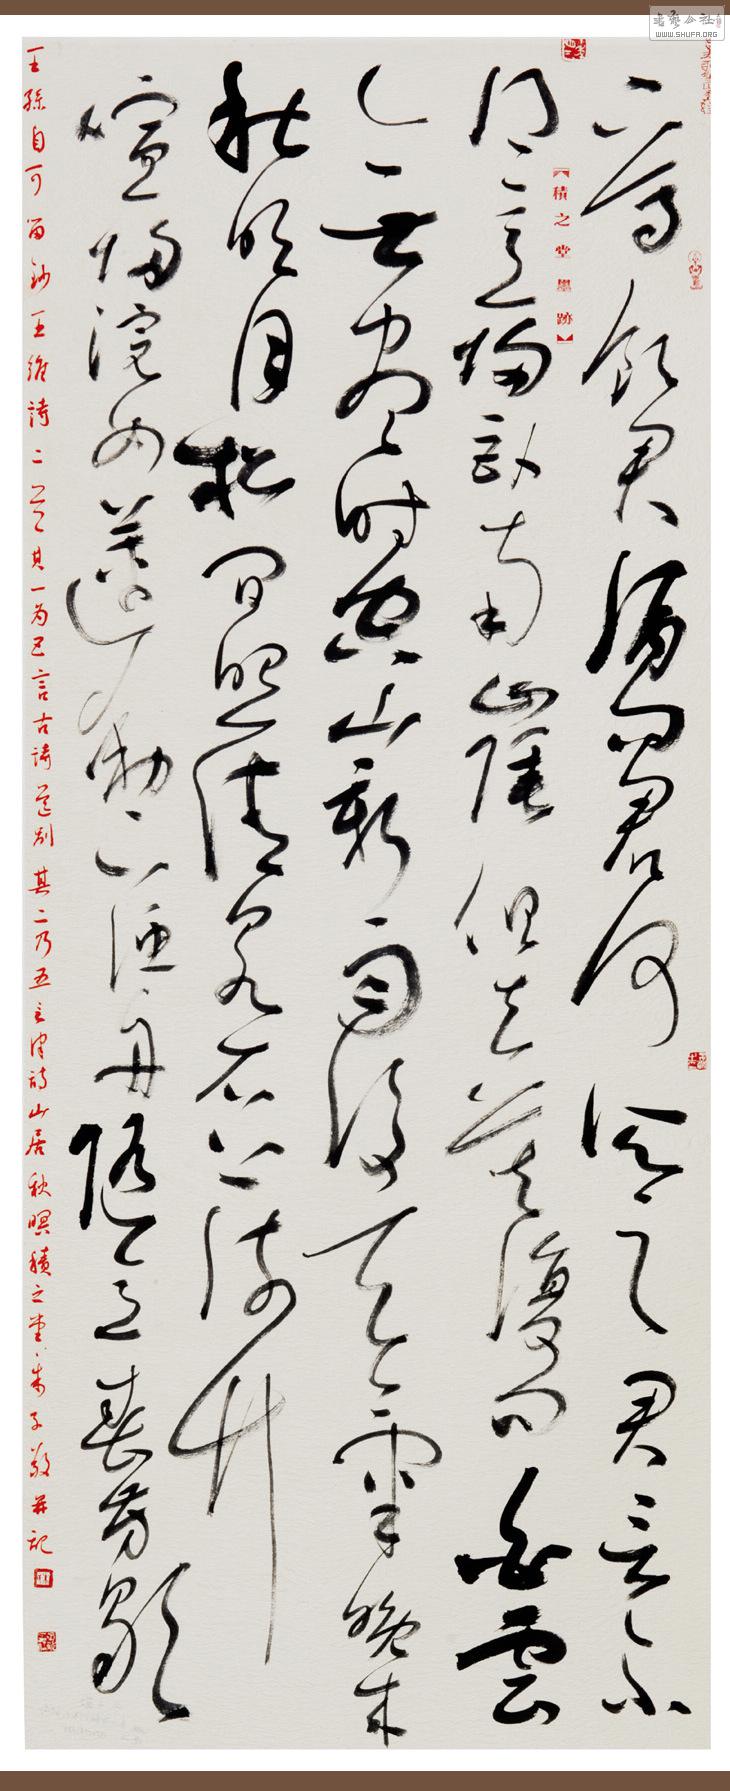 書藝公社
WWW.SHUFA.ORG
下馬飲君酒問君何所之君言不
得意歸臥南山陲但去莫復問白雲
無盡時空山新雨後天氣晚來
秋明月松間照清泉石上流竹
喧歸浣女蓮動下漁舟隨意春芳歇
王孫自可留鈔王維詩二首其一为五言古詩送別其二乃五言律詩山居秋暝積之堂朱子敬并記
【積之堂墨跡】